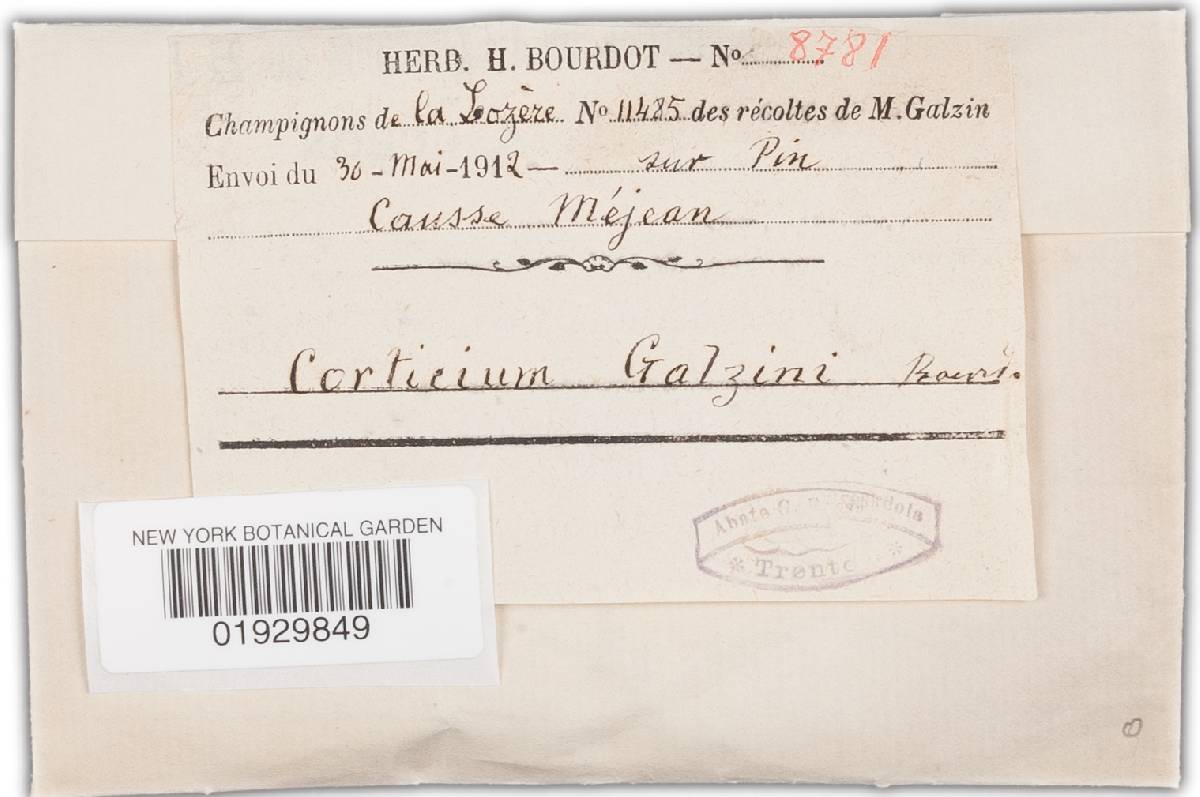 HERB. H. BOURDOT — No 8781
Champignons de la Lozère No 11485 des récoltes de M. Galzin
Envoi du 30 - Mai - 1912 — sur Pin
Causse Méjean
Corticium Galzini Bourd.
Abate G.
* Trento *
NEW YORK BOTANICAL GARDEN
01929849